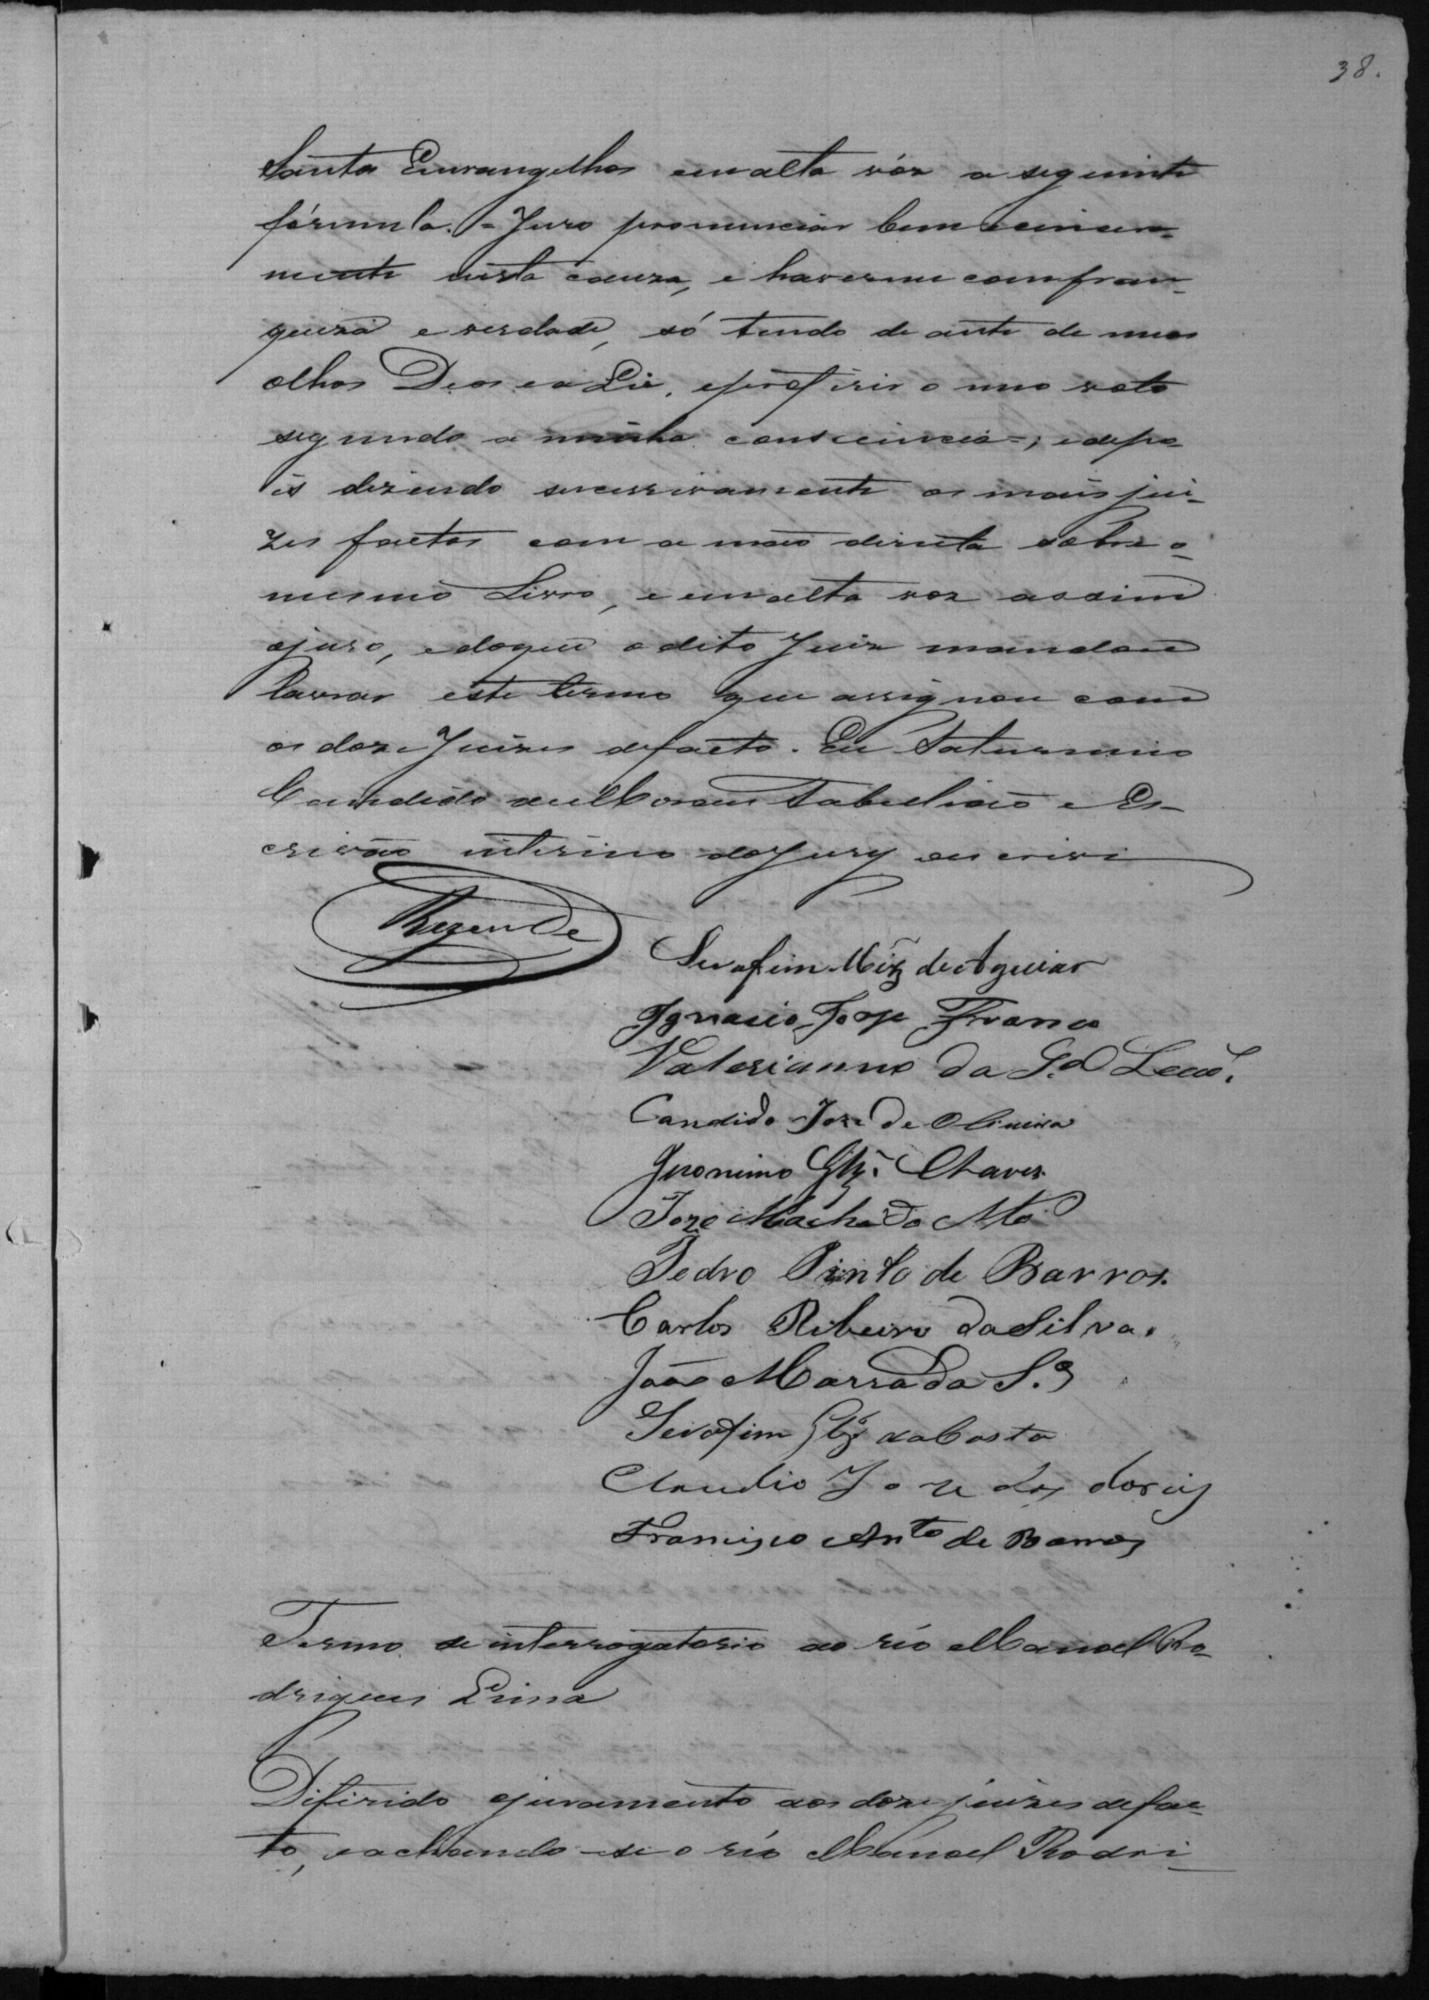 38.
Santos Euvangelhos em alta vóz a seguinte
fórmula. = Juro pronunciar bem e sincera-
mente nesta cauza, e haverme com fran-
queza e verdade, só tendo de ante de meus
olhos Deos e a Lei, e proferir o meo voto
segundo a minha consciencia =; e depo
is dizendo sucessivamente os mais jui-
zes factos com a mão direita sobre o
mesmo Livro, e em alta voz assim
o juro, e do que o dito Juiz mandou
lavrar este termo que assignou com
os doze Juizes de facto. Eu Saturnino
Candido de Moraes Tabelião e Es-
crivão interino do Jury escrivi
Rezende
Serafim Miz de Aguiar
Ignacio Jose Franco
Valerianno da S.ª Leaõ.
Candido Joze De Oliveira
Jeronimo Glz. Chaves
Joze Machado Nto
Pedro Pinto de Barros.
Carlos Ribeiro da Silva.
João Marra da S.ª
Serafim Glz da Costa
Claudio Joze dos
Francisco Anto de Barros
Termo de interrogatorio ao réo Manoel Ro-
drigues Lima
Difirido o juramento aos doze juizes de fac-
to, e achando-se o réo Manoel Rodri-